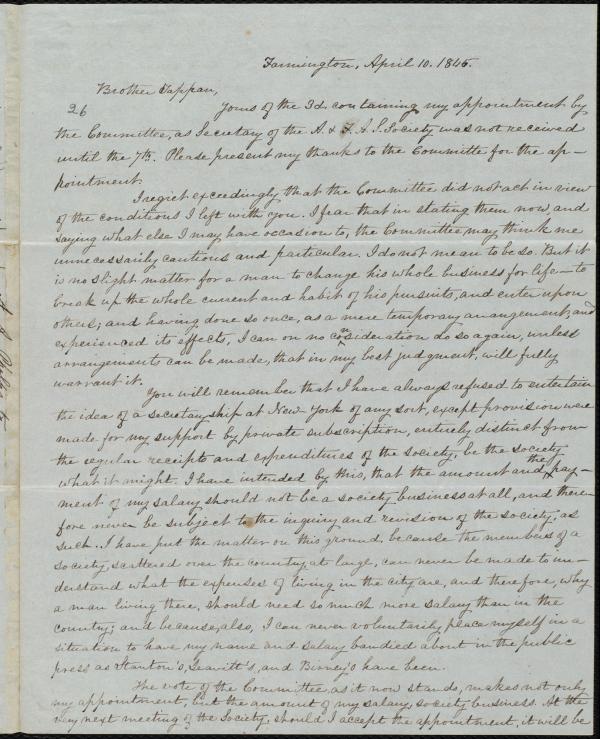 Farmington, April 10. 1845.
Brother Tappan,
26
Yours of the 3d. containing my appointment by
the Committee, as Secretary of the A. & F. A. S. Society was not received
until the 7th. Please present my thanks to the Committe for the ap-
pointment.
I regret exceedingly, that the Committee did not act in view
of the conditions I left with you. I fear that in stating them now, and
saying what else I may have occasion to, the Committee may think me
unnecessarily cautious and particular. I do not mean to be so. But it
is no slight matter for a man to change his whole business for life - to
break up the whole current and habit of his pursuits, and enter upon
others; and having done so once, as a mere temporary arrangement, and
experienced its effects, I can on no consideration do so again, unless
arrangements can be made, that in my best judgment, will fully
warrant it.
You will remember that I have always refused to entertain
the idea of a secretaryship at New York of any sort, except provision were
made for my support by private subscription, entirely distinct from
the regular receipts and expenditures of the society, be the society
what it might. I have intended by this, that the amount and the pay-
ment of my salary should not be a society business at all, and there-
fore never be subject to the inquiry and revision of the society, as
such. I have put the matter on this ground, because the members of a
society, scattered over the country at large, can never be made to un-
derstand what the expenses of living in the city are, and therefore, why
a man living there, should need so much more salary than in the
country; and because, also, I can never voluntarily place myself in a
situation to have my name and salary bandied about in the public
press as Stanton's, Leavitt's, and Birney's have been.
The vote of the Committee, as it now stands, makes not only
my appointment, but the amount of my salary, society business. At the
very next meeting of the Society, should I accept the appointment, it will be